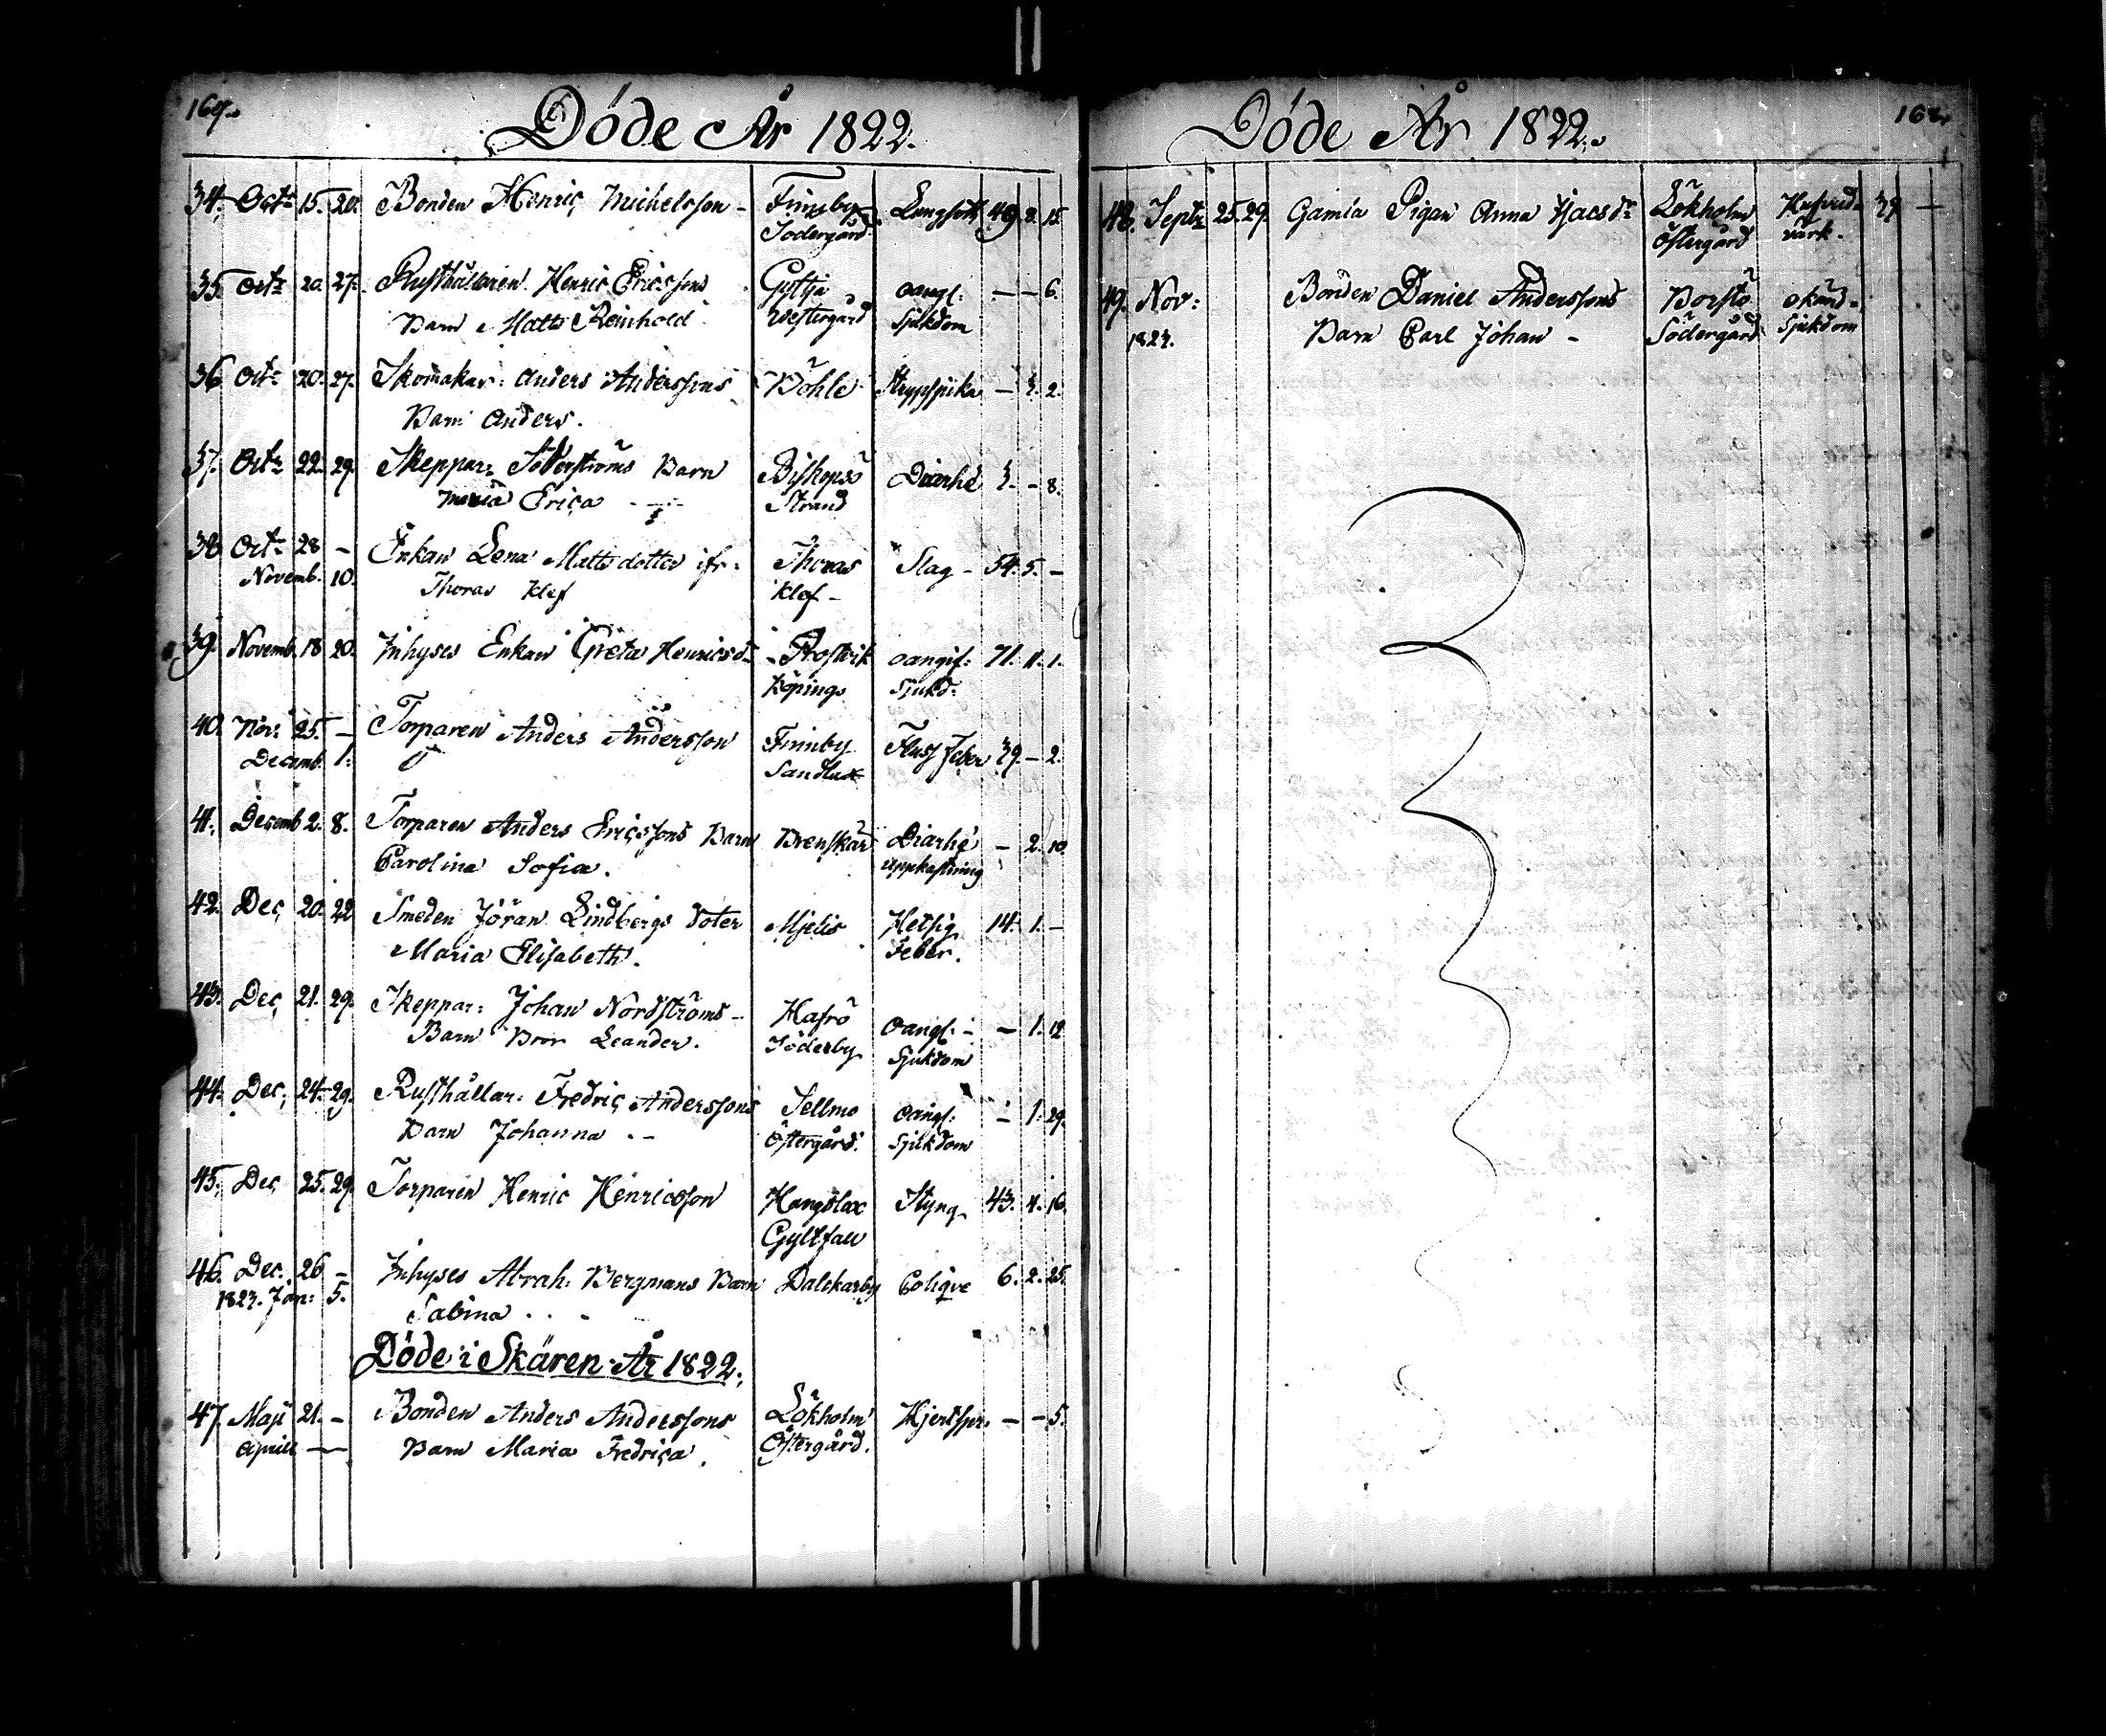 Döde År 1822.
34. Octr 15. 20. Bonden Henric Michelsson - Finnby Lungsot 49. 2. 15.
Södergård
35. Octr 20. 27. Rusthållaren Henric Ericssons Gyttja oangf: — — 6.
Barn Matts Reinhold Westergård Sjukdom
36. Octr 20. 27. Skomakar: Anders Anderssons Böhle Strypsjuka — 3. 2.
Barn Anders.
37. Octr 22. 29. Skeppar: Söderströms Barn Biskopsö Diarhé 3. - 8.
Maria Erica Strand
38. Octr 28 — Enkan Lena Mattsdotter ifr: Thoras Slag - 54. 5. —
Novemb. 10. Thoras Klef Klef -
39. Novemb. 18. 20. Inhyses Enkan Greta Henricsdr oangif: 71. 11. 1.
Köpings Sjukd:
40. Nov: 25. — Torparen Anders Andersson Finnby Fluss Feber 39. — 2.
Decemb. 1. Sandlax
41. Decemb 2. 8. Torparen Anders Ericssons Barn Brenskär Diarhé — 2. 10.
Carolina Sofia. uppkastning
42. Dec, 20. 22 Smeden Jöran Lindbergs doter Mjelis Hetsig 14. 1. —
Maria Elisabeth. Feber.
43. Dec, 21. 29. Skeppar: Johan Nordströms - Hafrö oangf: - — 1. 12
Barn Bror Leander. Söderby Sjukdom
44. Dec, 24. 29. Rusthållar: Fredric Anderssons Sellmo oangf: — 1. 29.
Barn Johanna Östergård. Sjukdom
45. Dec, 25. 29. Torparen Henric Henricsson Hangslax Styng 43. 4. 16.
46. Dec. 26 — Inhyses Abrah: Bergmans Barn Dalckarby Colique 6. 2. 25.
1823. Jan: 5. Sabina . . -
Döde i Skären År 1822.
47. Maji 21. — Bonden Anders Anderssons Lökholm Hjertspr. — — 5.
Aprill — Barn Maria Fredrica. Östergård.
Döde År 1822.
48. Septr 25. 29. Gamla Pigan Anna Isacsdr Lökholm Hufvud- 39 —
Östergård värk.
49. Nov: Bonden Daniel Anderssons Borstö okänd-
1823. Barn Carl Johan - Södergård Sjukdom